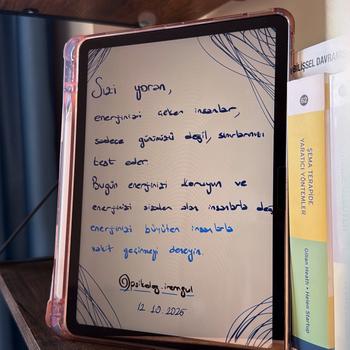 Sizi yoran,
enerjinizi çeken insanlar,
sadece gününüzü değil, sınırlarınızı
test eder
Bugün enerjinizi koruyun ve
enerjinizi sizden alan insanlarla değ
enerjinizi büyüten insanlarla
vakit geçirmeyi deneyin.
@psikolog.iremgul
12.10.2025
BİLİŞSEL DAVRAN
ŞEMA TERAPİDE
YARATICI YÖNTEMLER
Gillian Heath • Helen Startup